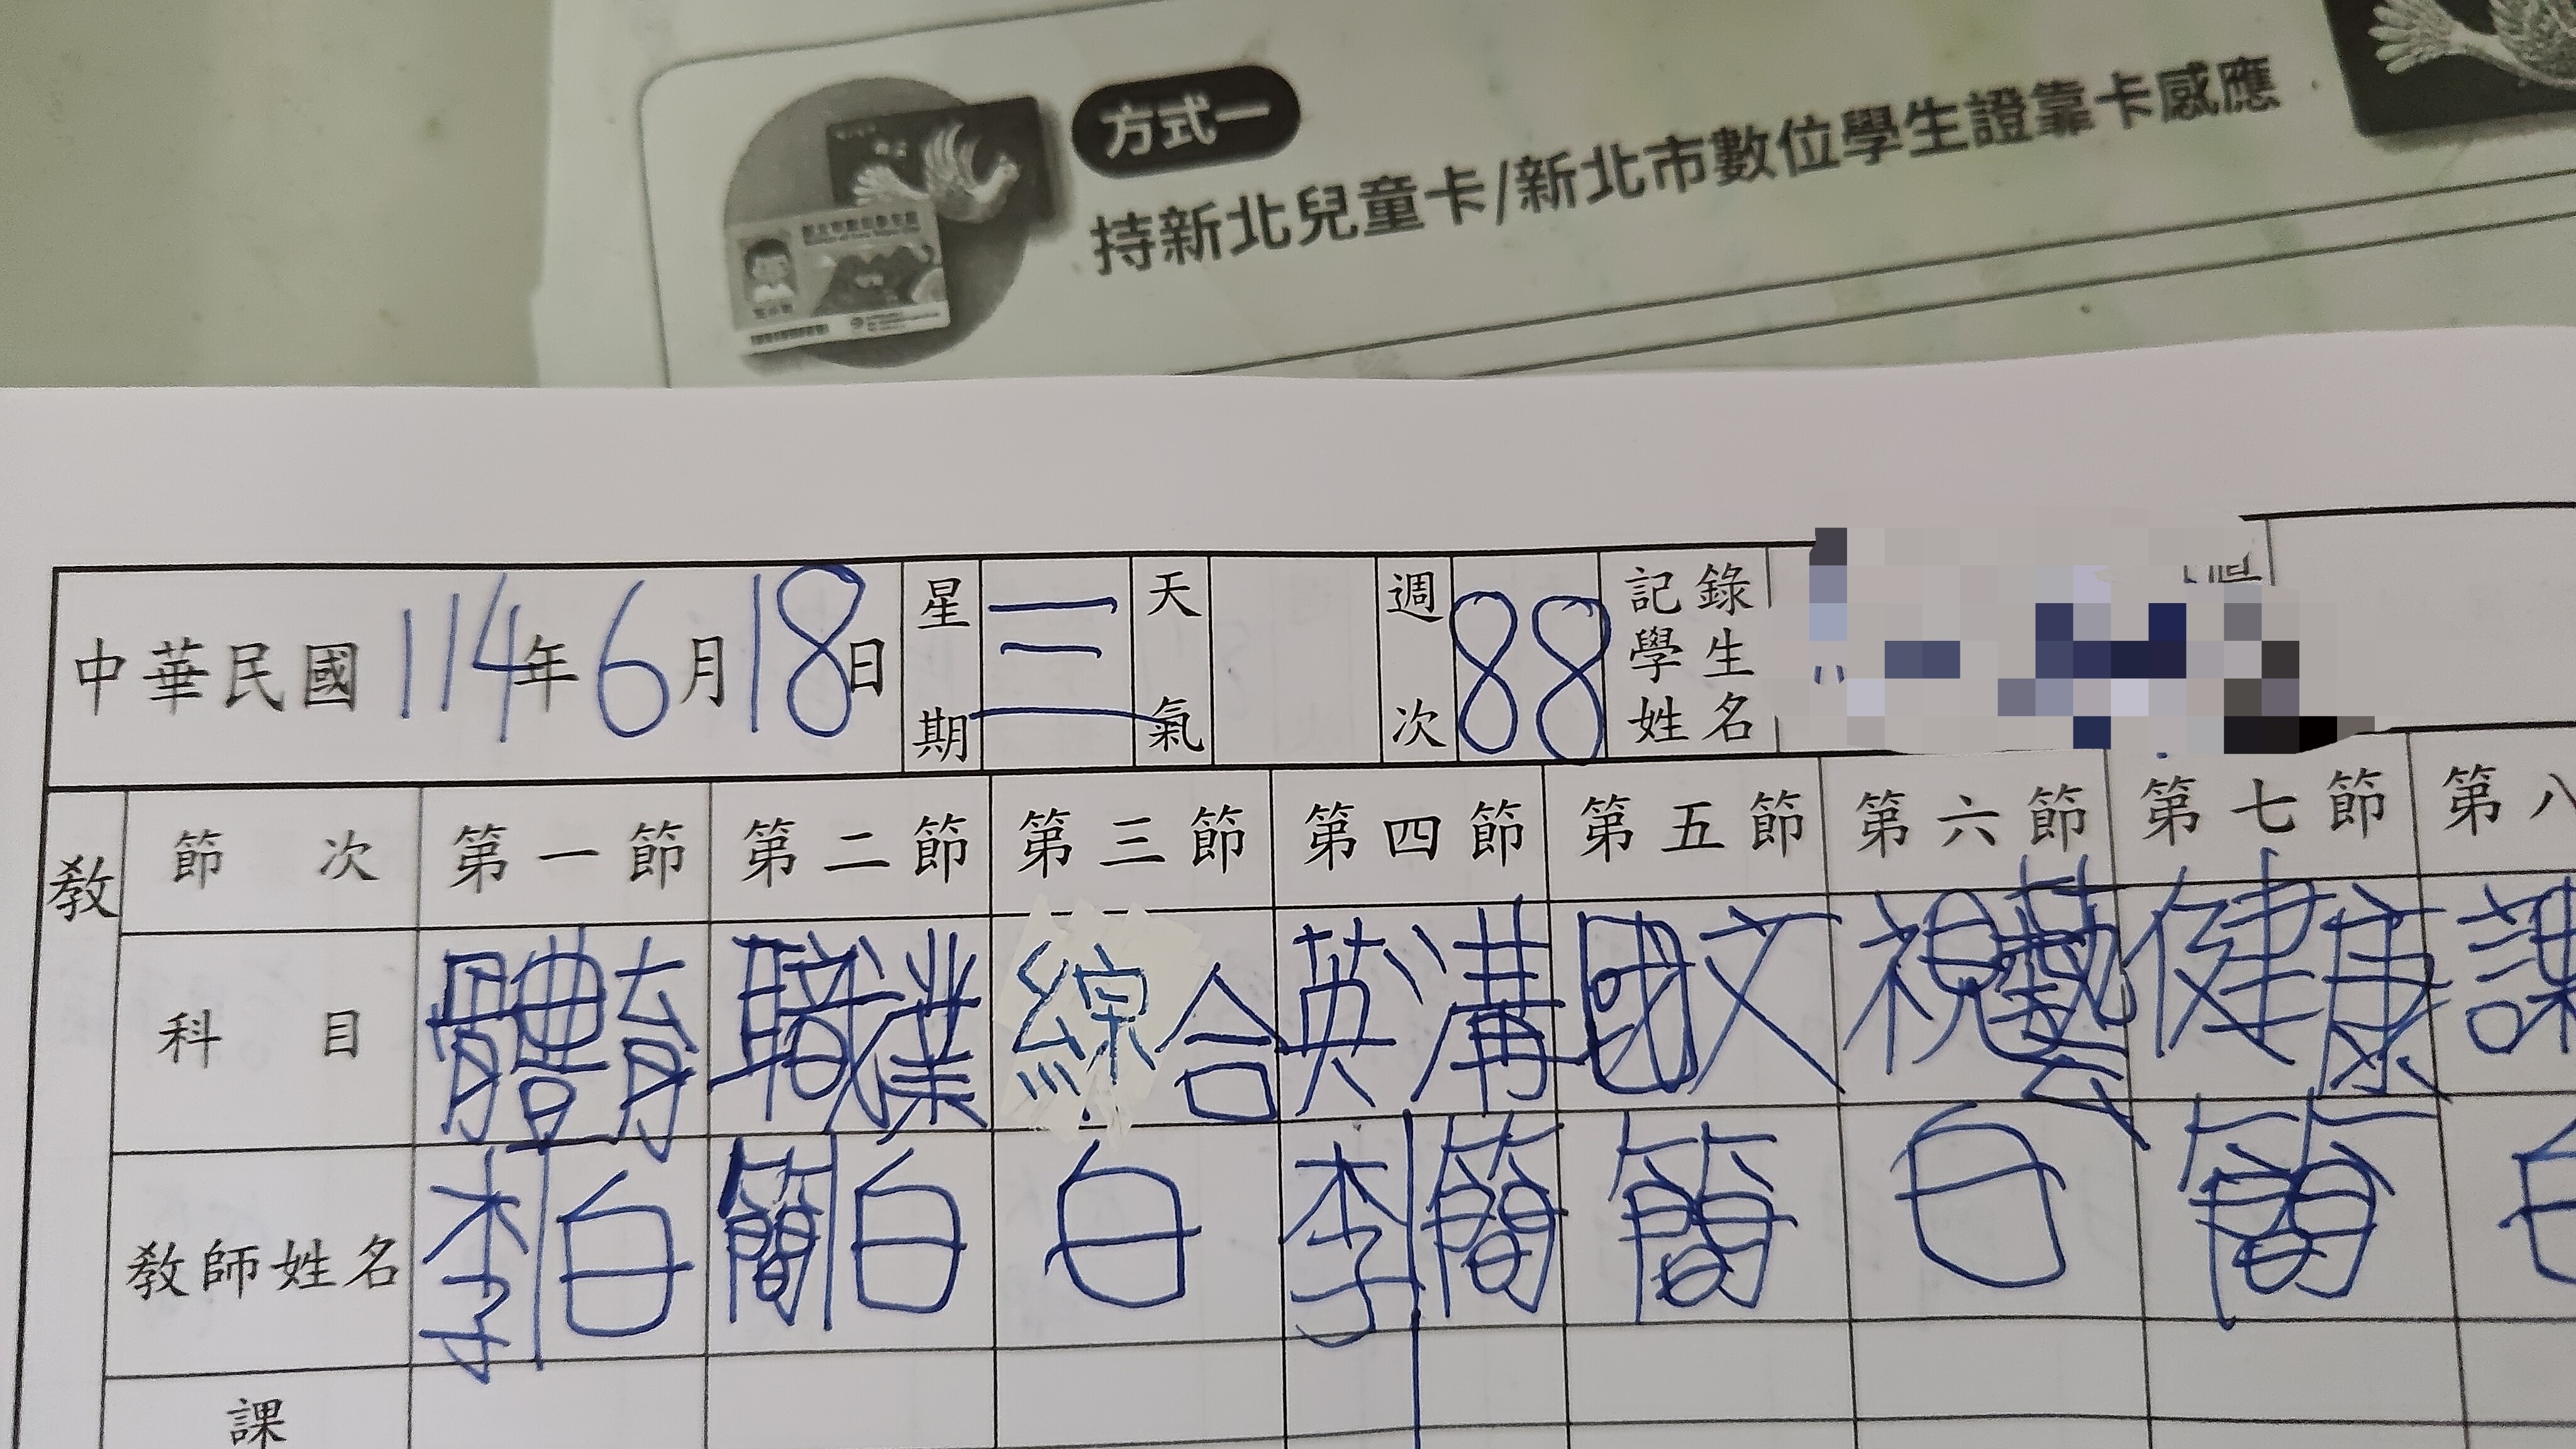 方式一
持新北兒童卡/新北市數位學生證靠卡感應
中華民國114年6月18日 星期 三 天氣 週次 88 記錄學生姓名
教 節次 第一節 第二節 第三節 第四節 第五節 第六節 第七節 第八
科目 體育 職業 綜合 英溝 國文 視藝 健康 課
教師姓名 李 白 簡 白 白 李 簡 簡 白 簡 白
課